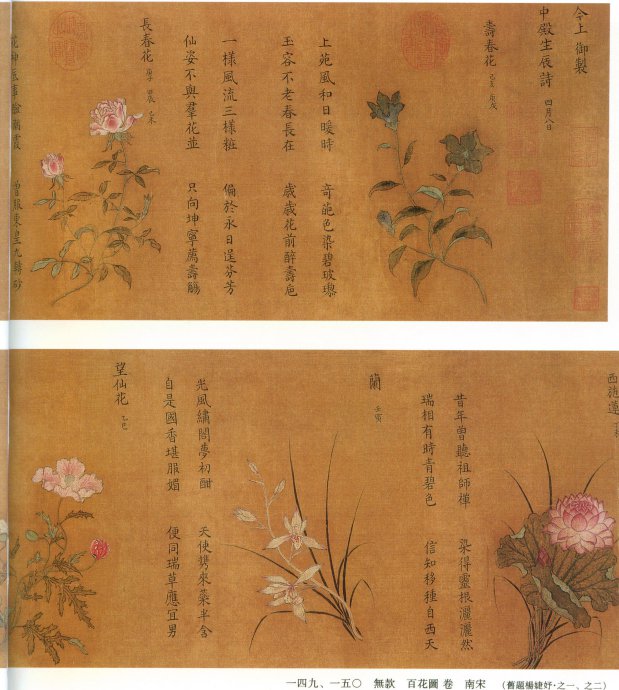 今上 御製
中殿生辰詩 四月八日
壽春花 己亥 庚戌
上苑風和日暖時 奇葩色染碧玻瓈
玉容不老春長在 歲歲花前醉壽卮
一樣風流三樣粧 偏於永日逞芬芳
仙姿不與羣花並 只向坤寧薦壽觴
長春花
花神底事臉潮霞 曾服東皇九轉砂
昔年曾聽祖師禪 染得靈根灑灑然
瑞相有時青碧色 信知移種自西天
蘭 壬寅
光風繡閣夢初酣 天使携來蘂半含
自是國香堪服媚 便同瑞草應宜男
望仙花 乙巳
一四九、一五〇 無款 百花圖 卷 南宋 (舊題楊婕妤·之一、之二)